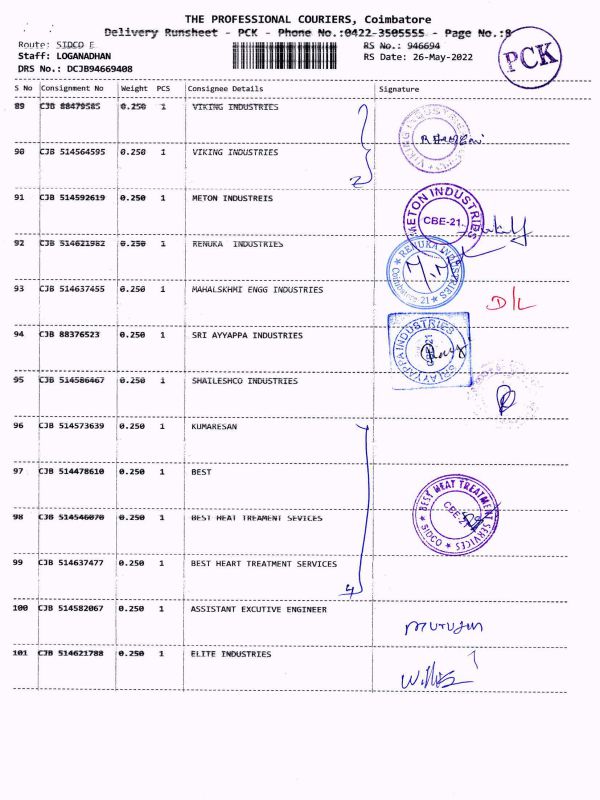 THE PROFESSIONAL COURIERS, Coimbatore
Delivery Runsheet - PCK - Phone No.:0422-3505555 - Page No.:8
Route: SIDCO E
RS No.: 946694
Staff: LOGANADHAN
RS Date: 26-May-2022
DRS No.: DCJB94669408
PCK
S No Consignment No Weight PCS Consignee Details Signature
89 CJB 88479585 0.250 1 VIKING INDUSTRIES
90 CJB 514564595 0.250 1 VIKING INDUSTRIES
2
91 CJB 514592619 0.250 1 METON INDUSTREIS
METON INDUSTRIES
CBE-21.
92 CJB 514621982 0.250 1 RENUKA INDUSTRIES
RENUKA INDUSTRIES
Coimbatore-21
93 CJB 514637455 0.250 1 MAHALSKHMI ENGG INDUSTRIES
D/L
94 CJB 88376523 0.250 1 SRI AYYAPPA INDUSTRIES
SRI AYYAPPA INDUSTRIES
95 CJB 514586467 0.250 1 SHAILESHCO INDUSTRIES
96 CJB 514573639 0.250 1 KUMARESAN
97 CJB 514478610 0.250 1 BEST
98 CJB 514546070 0.250 1 BEST HEAT TREAMENT SEVICES
BEST HEAT TREATMENT SERVICES
CBE-21
SIDCO
99 CJB 514637477 0.250 1 BEST HEART TREATMENT SERVICES
4
100 CJB 514582067 0.250 1 ASSISTANT EXCUTIVE ENGINEER
101 CJB 514621788 0.250 1 ELITE INDUSTRIES